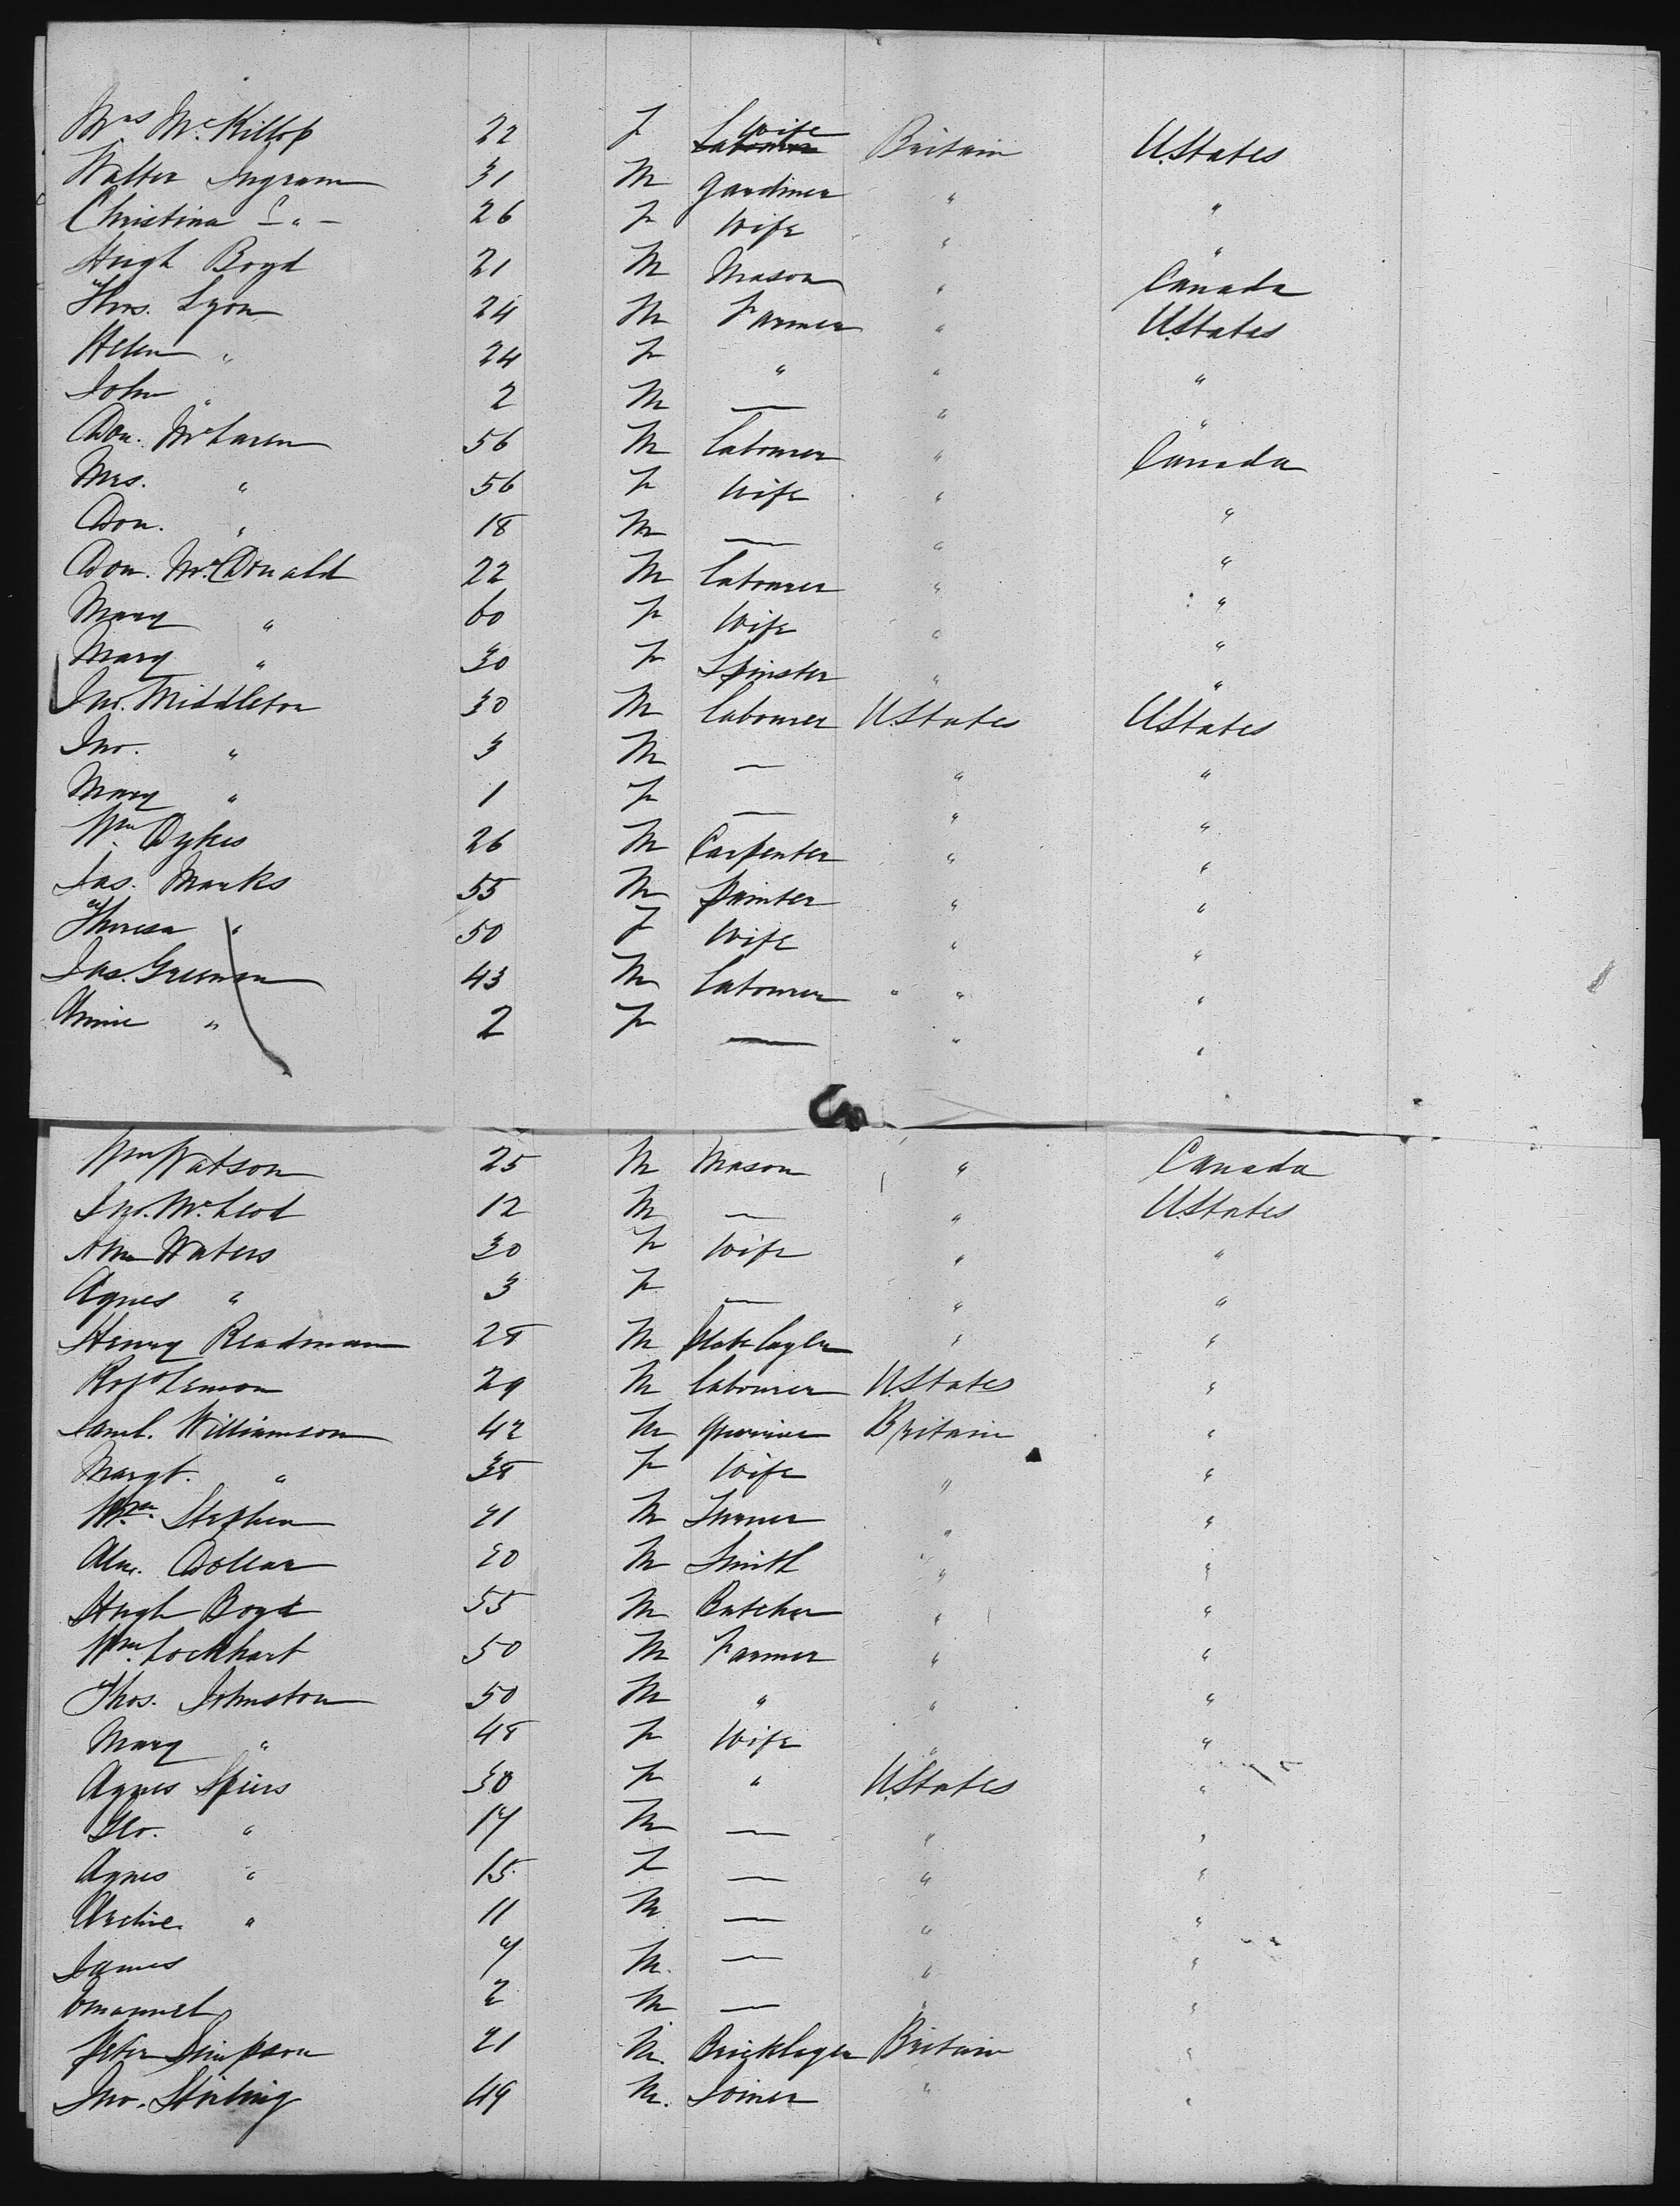 Mrs McKillop 22 F Labourer Wife Britain U.States
Walter Ingram 31 M Gardiner " "
Christina — " — 26 F Wife " "
Hugh Boyd 21 M Mason " Canada
Thos. Lyon 24 M Farmer " U.States
Helen " 24 F " " "
John " 2 M — " "
Don. McLaren 56 M Labourer " Canada
Mrs. " 56 F Wife " "
Don. " 18 M — " "
Don. McDonald 22 M Labourer " "
Mary " 60 F Wife " "
Mary " 30 F Spinster " "
Jno. Middleton 30 M Labourer U.States U.States
Jno. " 3 M — " "
Mary " 1 F — " "
Wm Dykes 26 M Carpenter " "
Jas. Marks 55 M Painter " "
Theresa " 50 F Wife " "
Jas. 43 M Labourer " " "
Annie " 2 F — " "
Wm Watson 25 M Mason " Canada
Jno. McLeod 12 M — " U.States
Waters 30 F Wife " "
Agnes " 3 F — " "
Henry Readman 28 M Platelayer " "
Lemon 29 M Labourer U.States "
Saml. Williamson 42 M Britain "
Margt. " 38 F Wife " "
Wm. Stephen 21 M Turner " "
Alex. Dollar 20 M Smith " "
Hugh Boyd 55 M Butcher " "
Wm. Lockhart 50 M Farmer " "
Thos. Johnston 50 M " " "
Mary " 48 F Wife " "
Agnes Spiers 30 F " U.States "
Geo. " 17 M — " "
Agnes " 15 F — " "
Archie. " 11 M — " "
James 7 M. — " "
Emanuel 2 M — " "
Peter Simpson 21 M. Bricklayer Britain "
Jno. Stirling 49 M. Joiner " "